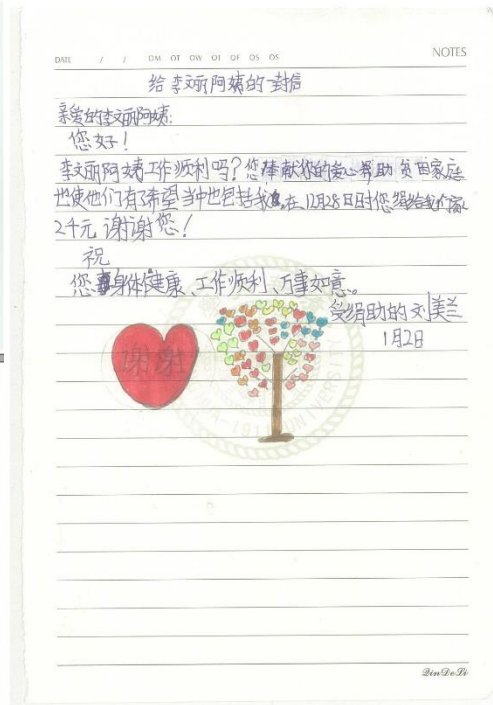 NOTES
DATE / / OM OT OW OT OF OS OS
给李文丽阿姨的一封信
亲爱的李文丽阿姨:
您好!
李文丽阿姨工作顺利吗?您奉献您的爱心帮助贫困家庭
也使他们有了希望当中也包括我。在12月28日时您捐给我们家
2千元谢谢您!
祝
您身体健康、工作顺利、万事如意。
受捐助的刘美兰
1月2日
谢谢
1911
UNIVERSITY
QinDeLi